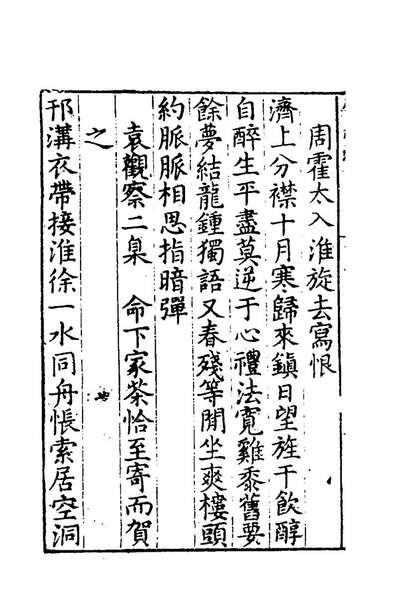 周霍太入淮旋去寫恨
濟上分襟十月寒歸來鎮日望旌干飲醇
自醉生平盡莫逆于心禮法寬雞黍舊要
餘夢結龍鍾獨語又春殘等閒坐爽樓頭
約脈脈相思指暗彈
袁觀察二臬　命下家茶恰至寄而賀
之
邗溝衣帶接淮徐一水同舟悵索居空洞